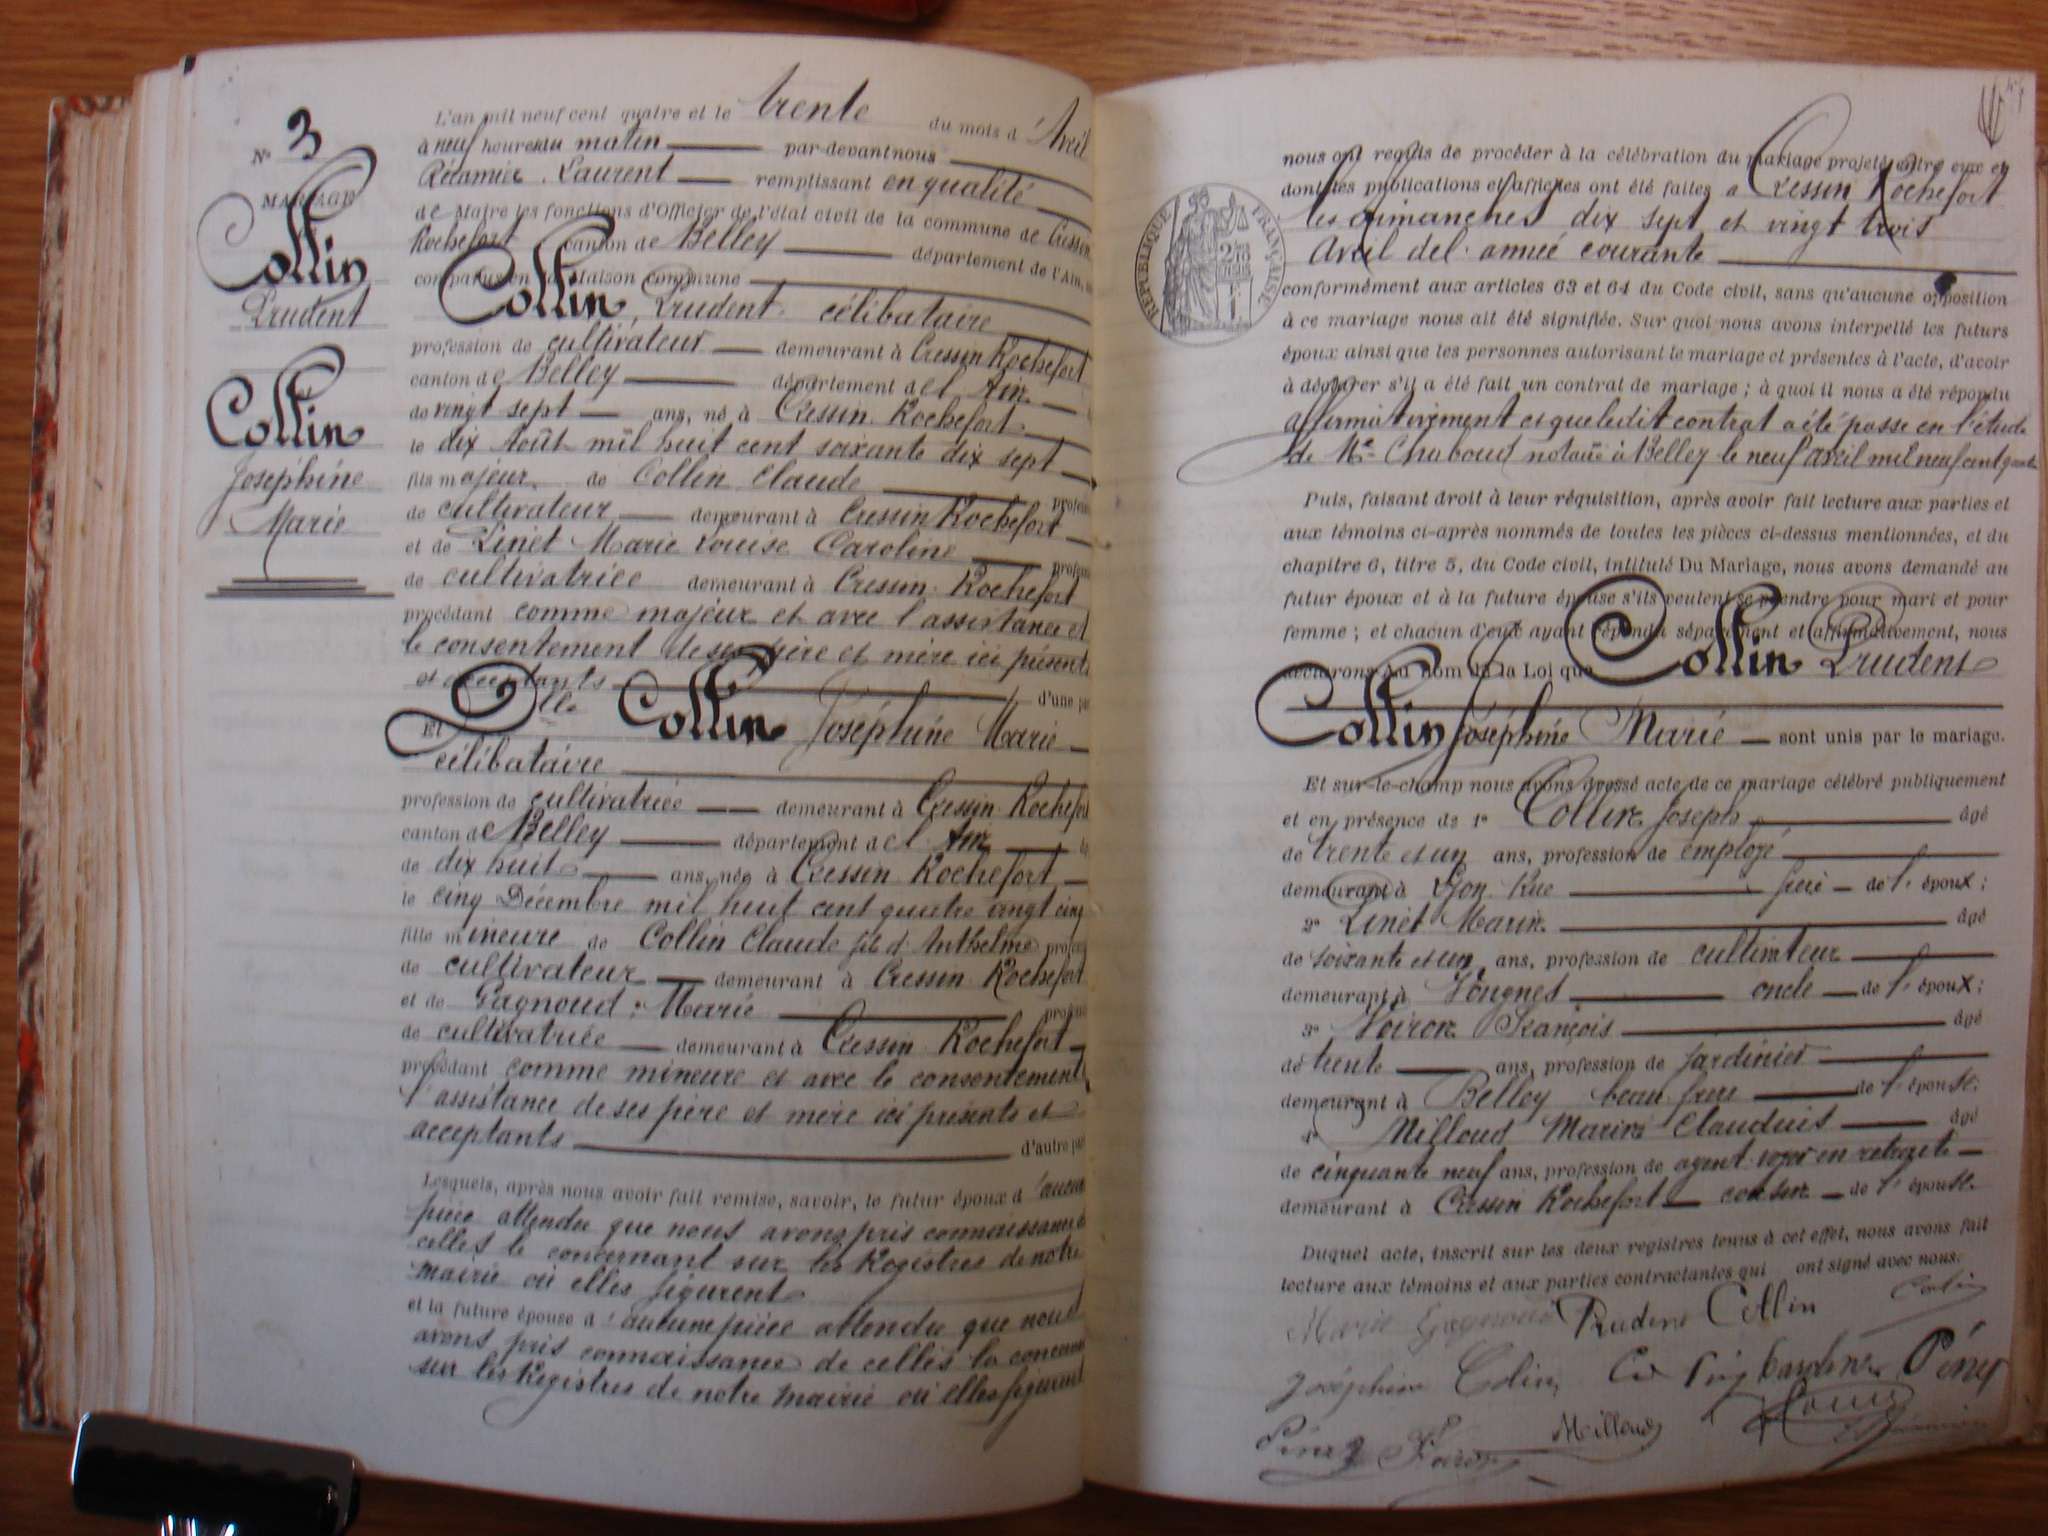 N° 3
MARIAGE
Collin
Prudent
Collin
Joséphine
Marie
L'an mil neuf cent quatre et le trente du mois d'Avril
à neuf heures du matin par-devant nous
Récamier Laurent remplissant en qualité
de Maire les fonctions d'Officier de l'état civil de la commune de Cressin
Rochefort canton de Belley département de l'Ain,
comparus en la Maison commune
Collin Prudent célibataire
profession de cultivateur demeurant à Cressin Rochefort
canton de Belley département de l'Ain
de vingt sept ans, né à Cressin Rochefort
le dix Août mil huit cent soixante dix sept
fils majeur de Collin Claude profess
de cultivateur demeurant à Cressin Rochefort
et de Pinet Marie Louise Caroline profess
de cultivatrice demeurant à Cressin Rochefort
procédant comme majeur et avec l'assistance et
le consentement de ses père et mère ici présents
et acceptants d'une pa
Et Dlle Collin Joséphine Marie
célibataire
profession de cultivatrice demeurant à Cressin Rochefor
canton de Belley département de l'Ain
de dix huit ans, née à Cressin Rochefort
le cinq Décembre mil huit cent quatre vingt cinq
fille mineure de Collin Claude fils d'Anthelme profess
de cultivateur demeurant à Cressin Rochefort
et de Gagnoud Marie profess
de cultivatrice demeurant à Cressin Rochefort
procédant comme mineure et avec le consentement
l'assistance de ses père et mère ici présents et
acceptants d'autre par
Lesquels, après nous avoir fait remise, savoir, le futur époux d'aucune
pièce attendu que nous avons pris connaissance de
celles le concernant sur les Registres de notre
mairie où elles figurent
et la future épouse d'aucune pièce attendu que nous
avons pris connaissance de celles la concernant
sur les Registres de notre mairie où elles figurent
nous ont requis de procéder à la célébration du mariage projeté entre eux et
dont les publications et affiches ont été faites à Cressin Rochefort
les dimanches dix sept et vingt trois
Avril de l'année courante
RÉPUBLIQUE FRANÇAISE
conformément aux articles 63 et 64 du Code civil, sans qu'aucune opposition
à ce mariage nous ait été signifiée. Sur quoi nous avons interpellé les futurs
époux ainsi que les personnes autorisant le mariage et présentes à l'acte, d'avoir
à déclarer s'il a été fait un contrat de mariage ; à quoi il nous a été répondu
affirmativement et que ledit contrat a été passé en l'étude
de Me Chaboud notaire à Belley le neuf avril mil neuf cent quatre
Puis, faisant droit à leur réquisition, après avoir fait lecture aux parties et
aux témoins ci-après nommés de toutes les pièces ci-dessus mentionnées, et du
chapitre 6, titre 5, du Code civil, intitulé Du Mariage, nous avons demandé au
futur époux et à la future épouse s'ils veulent se prendre pour mari et pour
femme ; et chacun d'eux ayant répondu séparément et affirmativement, nous
déclarons Au nom de la Loi que Collin Prudent
Collin Joséphine Marie sont unis par le mariage.
Et sur-le-champ nous avons dressé acte de ce mariage célébré publiquement
et en présence de 1° Collin Joseph âgé
de trente et un ans, profession de employé
demeurant à Lyon Rue frère de l'époux ;
2° Pinet Marin âgé
de soixante et un ans, profession de cultivateur
demeurant à Vongnes oncle de l'époux ;
3° Voiron François âgé
de trente ans, profession de jardinier
demeurant à Belley beau frère de l'épouse ;
4° Milloud Marin Claudius âgé
de cinquante neuf ans, profession de agent voyer en retraite
demeurant à Cressin Rochefort cousin de l'épouse
Duquel acte, inscrit sur les deux registres tenus à cet effet, nous avons fait
lecture aux témoins et aux parties contractantes qui ont signé avec nous.
Marie Gagnoud Prudent Collin Collin
Joséphine Colin Caroline Pinet
Pinet Voiron Milloud